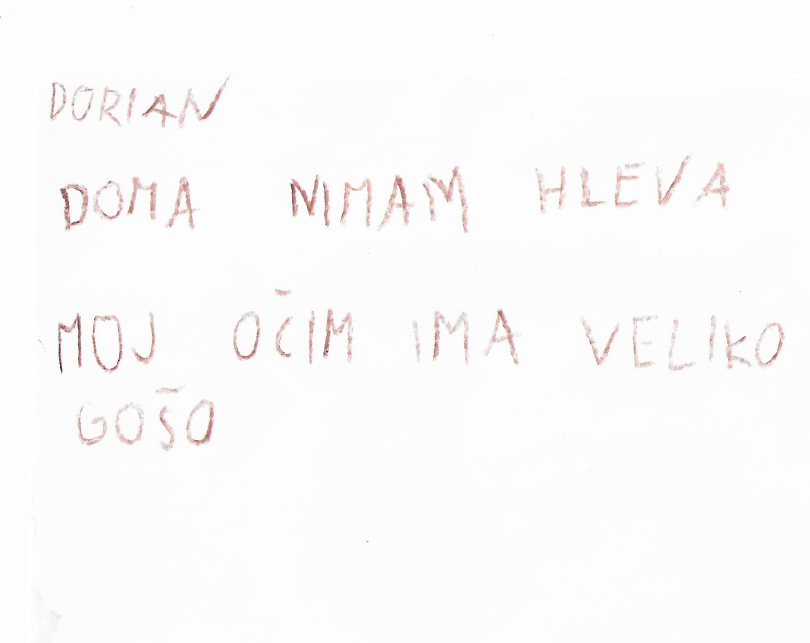 DORIAN
DOMA NIMAM HLEVA
MOJ OČIM IMA VELIKO
GOŠO